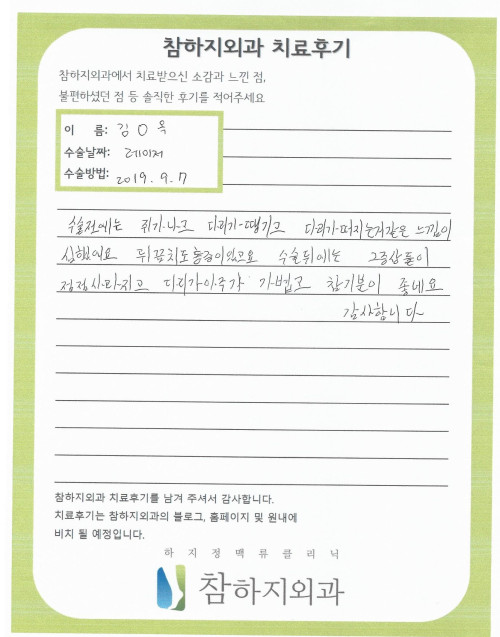 참하지외과 치료후기
참하지외과에서 치료받으신 소감과 느낀 점,
불편하셨던 점 등 솔직한 후기를 적어주세요
이 름: 김 O 옥
수술날짜: 레이저
수술방법: 2019. 9. 7
수술전에는 쥐가나고 다리가 땡기고 다리가 터지는거같은 느낌이
심했어요 뒤꿈치도 통증이있었으 수술뒤에는 그증상들이
점점사라지고 다리가아주가 가볍고 참기분이 좋네요
감사합니다
참하지외과 치료후기를 남겨 주셔서 감사합니다.
치료후기는 참하지외과의 블로그, 홈페이지 및 원내에
비치 될 예정입니다.
하지정맥류클리닉
참하지외과